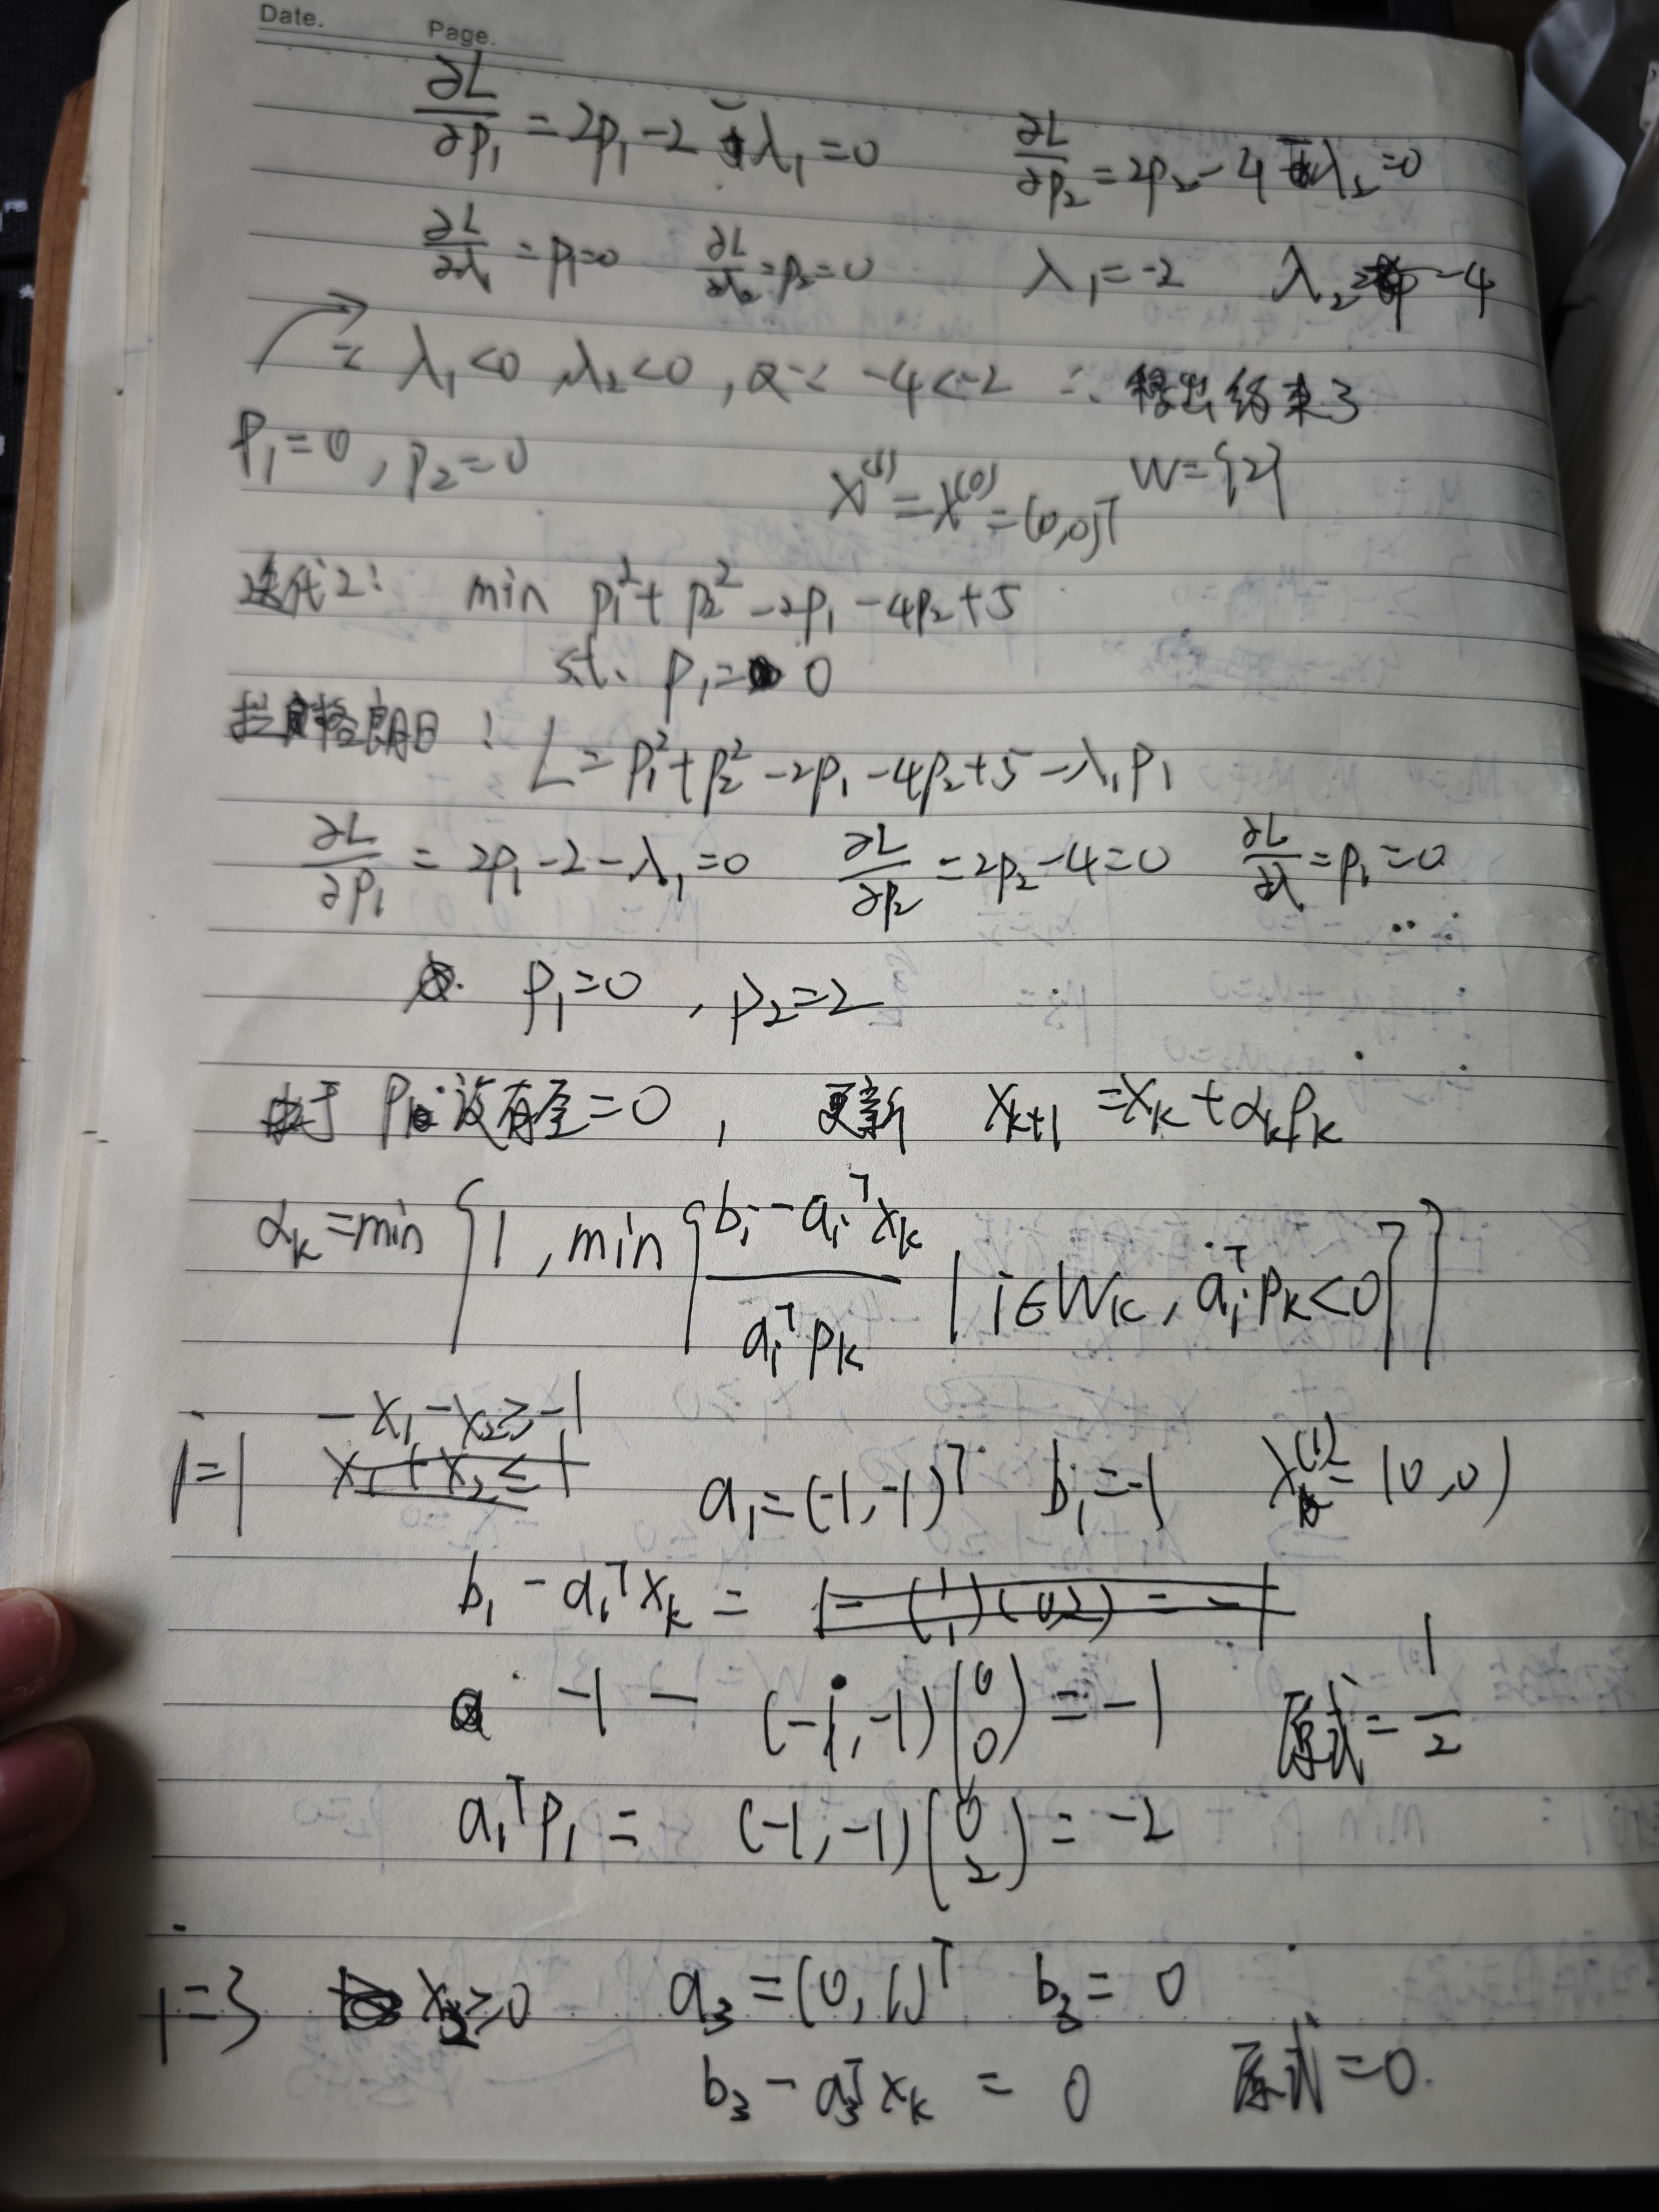 Date. Page.
∂L/∂p₁ = 2p₁ - 2 - λ₁ = 0 ∂L/∂p₂ = 2p₂ - 4 - λ₂ = 0
∂L/∂λ₁ = p₁ = 0 ∂L/∂λ₂ = p₂ = 0 λ₁ = -2 λ₂ = -4
∵ λ₁ < 0, λ₂ < 0, 又∵ -4 < -2 ∴ 移出约束3
p₁ = 0, p₂ = 0 x⁽¹⁾ = x⁽⁰⁾ = (0,0)ᵀ W = {2}
迭代2: min p₁² + p₂² - 2p₁ - 4p₂ + 5
s.t. p₁ = 0
拉格朗日: L = p₁² + p₂² - 2p₁ - 4p₂ + 5 - λ₁p₁
∂L/∂p₁ = 2p₁ - 2 - λ₁ = 0 ∂L/∂p₂ = 2p₂ - 4 = 0 ∂L/∂λ₁ = p₁ = 0
p₁ = 0, p₂ = 2
由于 pₖ 没有全 = 0, 更新 xₖ₊₁ = xₖ + αₖpₖ
αₖ = min {1, min {(bᵢ - aᵢᵀxₖ)/(aᵢᵀpₖ) | i∈Wₖ, aᵢᵀpₖ < 0}}
-x₁ - x₂ ≥ -1
i=1 x₁ + x₂ ≤ 1 a₁ = (-1,-1)ᵀ b₁ = -1 x⁽¹⁾ = (0,0)
b₁ - a₁ᵀxₖ =
-1 - (-1,-1)(0 0) = -1 原式 = 1/2
a₁ᵀp₁ = (-1,-1)(0 2) = -2
i=3 x₂ ≥ 0 a₃ = (0,1)ᵀ b₃ = 0
b₃ - a₃ᵀxₖ = 0 原式 = 0.